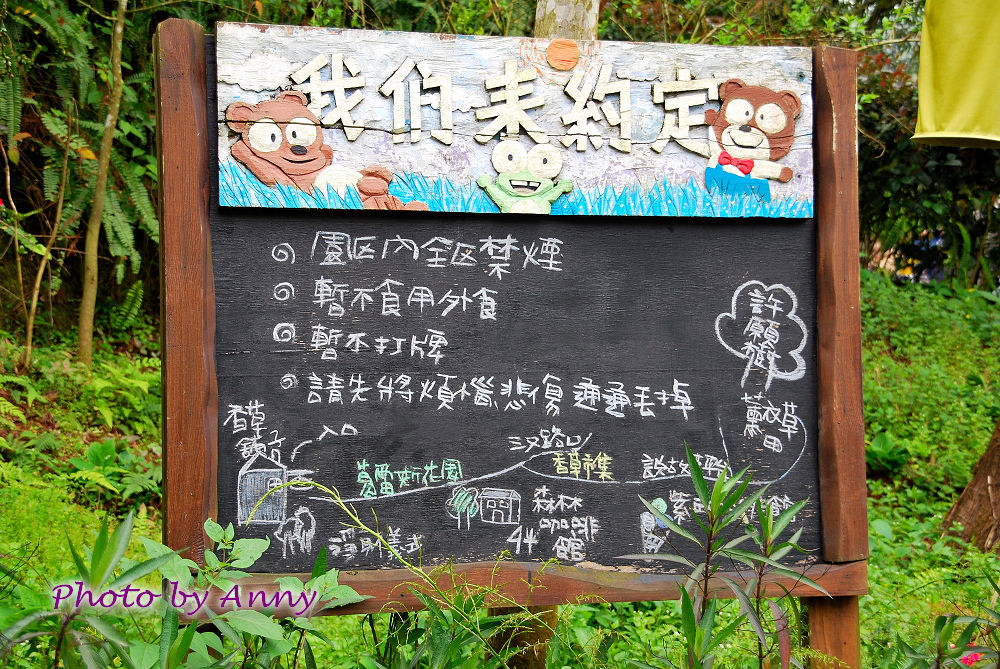 我們來約定
園区內全区禁煙
暫不食用外食
暫不打牌
請先將煩惱悲傷通通丟掉
許願樹
香草
鋪子
入口
葛雷斯花園
三叉路口
香草市集
說故事
薰衣草
田
森林
咖啡
館
淨身儀式
紫
館
Photo by Anny